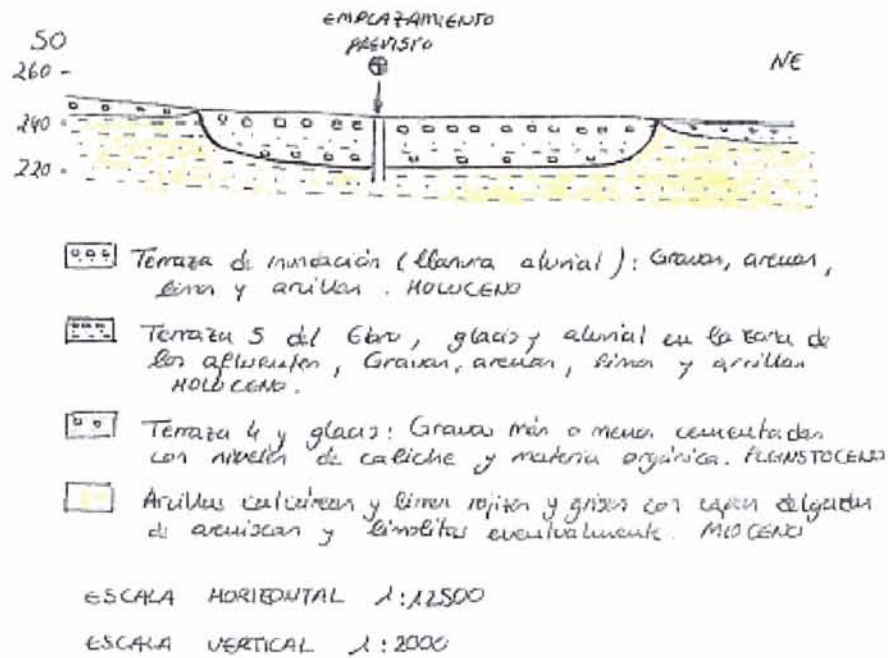 EMPLAZAMIENTO
PREVISTO
SO
NE
260 -
240 -
220 -
Terraza de inundación (llanura aluvial): Gravas, arenas,
limos y arcillas. HOLOCENO
Terraza 5 del Ebro, glacis y aluvial en la zona de
los afluentes, Gravas, arenas, limos y arcillas
HOLOCENO.
Terraza 4 y glacis: Gravas más o menos cementadas
con niveles de caliche y materia orgánica. PLEISTOCENO
Arcillas calcáreas y limos rojizos y grises con capas delgadas
de areniscas y limolitas eventualmente. MIOCENO
ESCALA HORIZONTAL 1:12500
ESCALA VERTICAL 1:2000